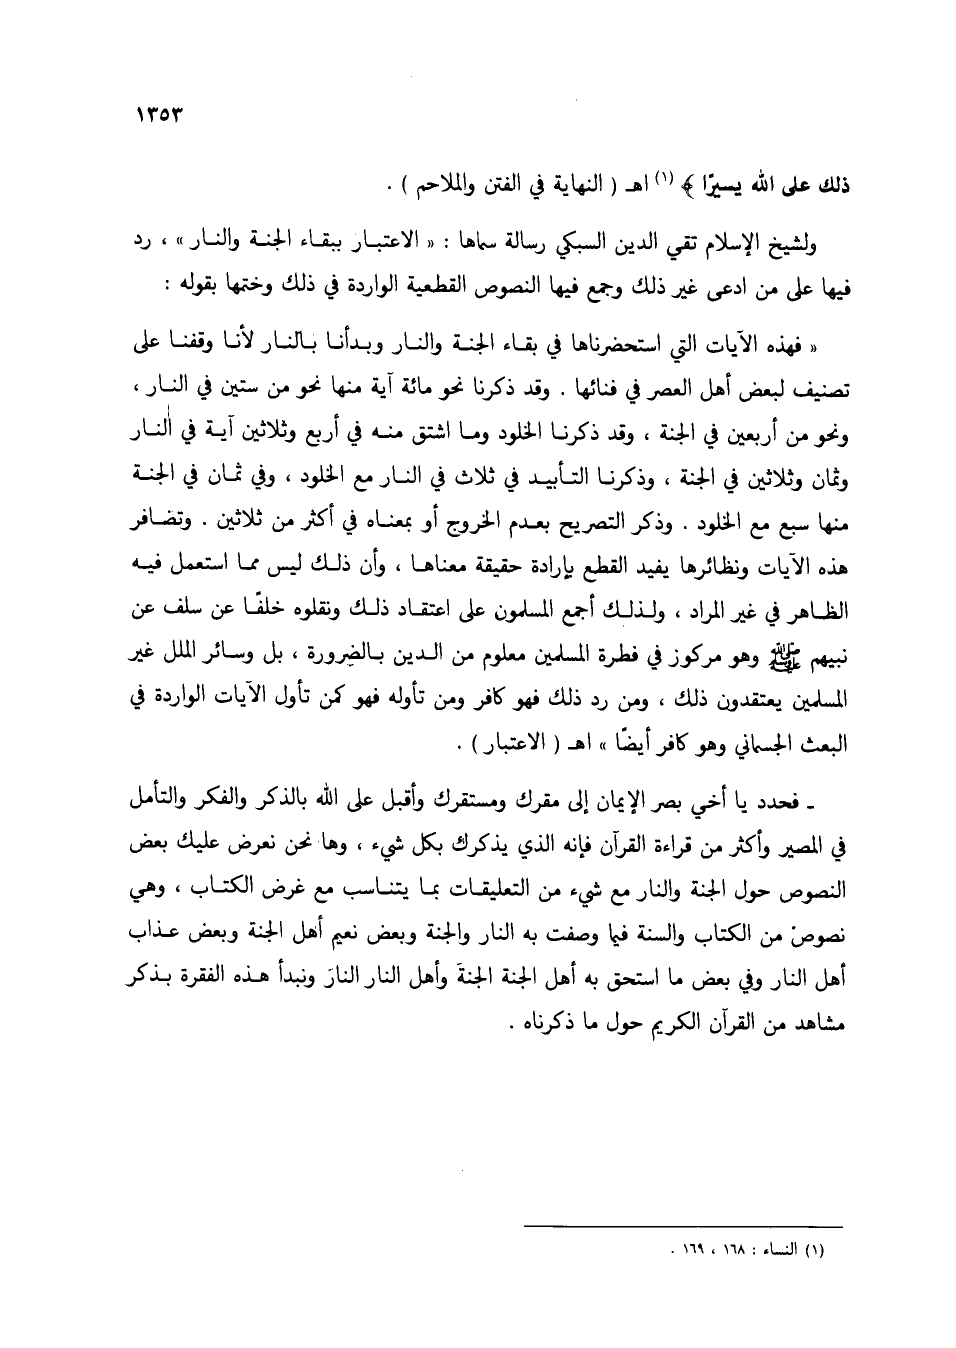 ١٣٥٣
ذلك على الله يسيرًا ﴾ (١) اهـ ( النهاية في الفتن والملاحم ) .
ولشيخ الإسلام تقي الدين السبكي رسالة سماها : « الاعتبار ببقاء الجنة والنار » ، رد
فيها على من ادعى غير ذلك وجمع فيها النصوص القطعية الواردة في ذلك وختمها بقوله :
« فهذه الآيات التي استحضرناها في بقاء الجنة والنار وبدأنا بالنار لأنا وقفنا على
تصنيف لبعض أهل العصر في فنائها . وقد ذكرنا نحو مائة آية منها نحو من ستين في النار ،
ونحو من أربعين في الجنة ، وقد ذكرنا الخلود وما اشتق منه في أربع وثلاثين آية في النار
وثمان وثلاثين في الجنة ، وذكرنا التأبيد في ثلاث في النار مع الخلود ، وفي ثمان في الجنة
منها سبع مع الخلود . وذكر التصريح بعدم الخروج أو بمعناه في أكثر من ثلاثين . وتضافر
هذه الآيات ونظائرها يفيد القطع بإرادة حقيقة معناها ، وأن ذلك ليس مما استعمل فيه
الظاهر في غير المراد ، ولذلك أجمع المسلمون على اعتقاد ذلك ونقلوه خلفًا عن سلف عن
نبيهم ﷺ وهو مركوز في فطرة المسلمين معلوم من الدين بالضرورة ، بل وسائر الملل غير
المسلمين يعتقدون ذلك ، ومن رد ذلك فهو كافر ومن تأوله فهو كمن تأول الآيات الواردة في
البعث الجسماني وهو كافر أيضًا » اهـ ( الاعتبار ) .
ـ فحدد يا أخي بصر الإيمان إلى مقرك ومستقرك وأقبل على الله بالذكر والفكر والتأمل
في المصير وأكثر من قراءة القرآن فإنه الذي يذكرك بكل شيء ، وها نحن نعرض عليك بعض
النصوص حول الجنة والنار مع شيء من التعليقات بما يتناسب مع غرض الكتاب ، وهي
نصوصٌ من الكتاب والسنة فيما وصفت به النار والجنة وبعض نعيم أهل الجنة وبعض عذاب
أهل النار وفي بعض ما استحق به أهل الجنة الجنةَ وأهل النار النارَ ونبدأ هذه الفقرة بذكر
مشاهد من القرآن الكريم حول ما ذكرناه .
(١) النساء : ١٦٨ ، ١٦٩ .